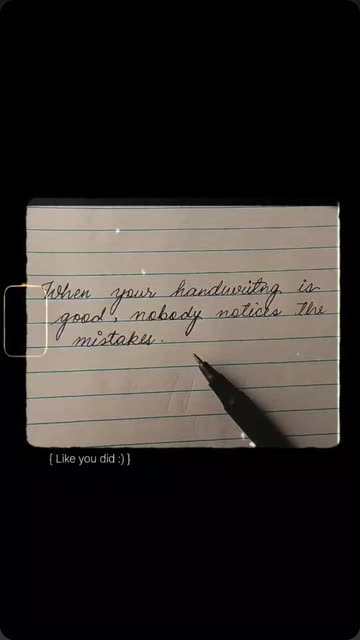 When your handwritng is
good, nobody notices the
mistakes.
{ Like you did :) }